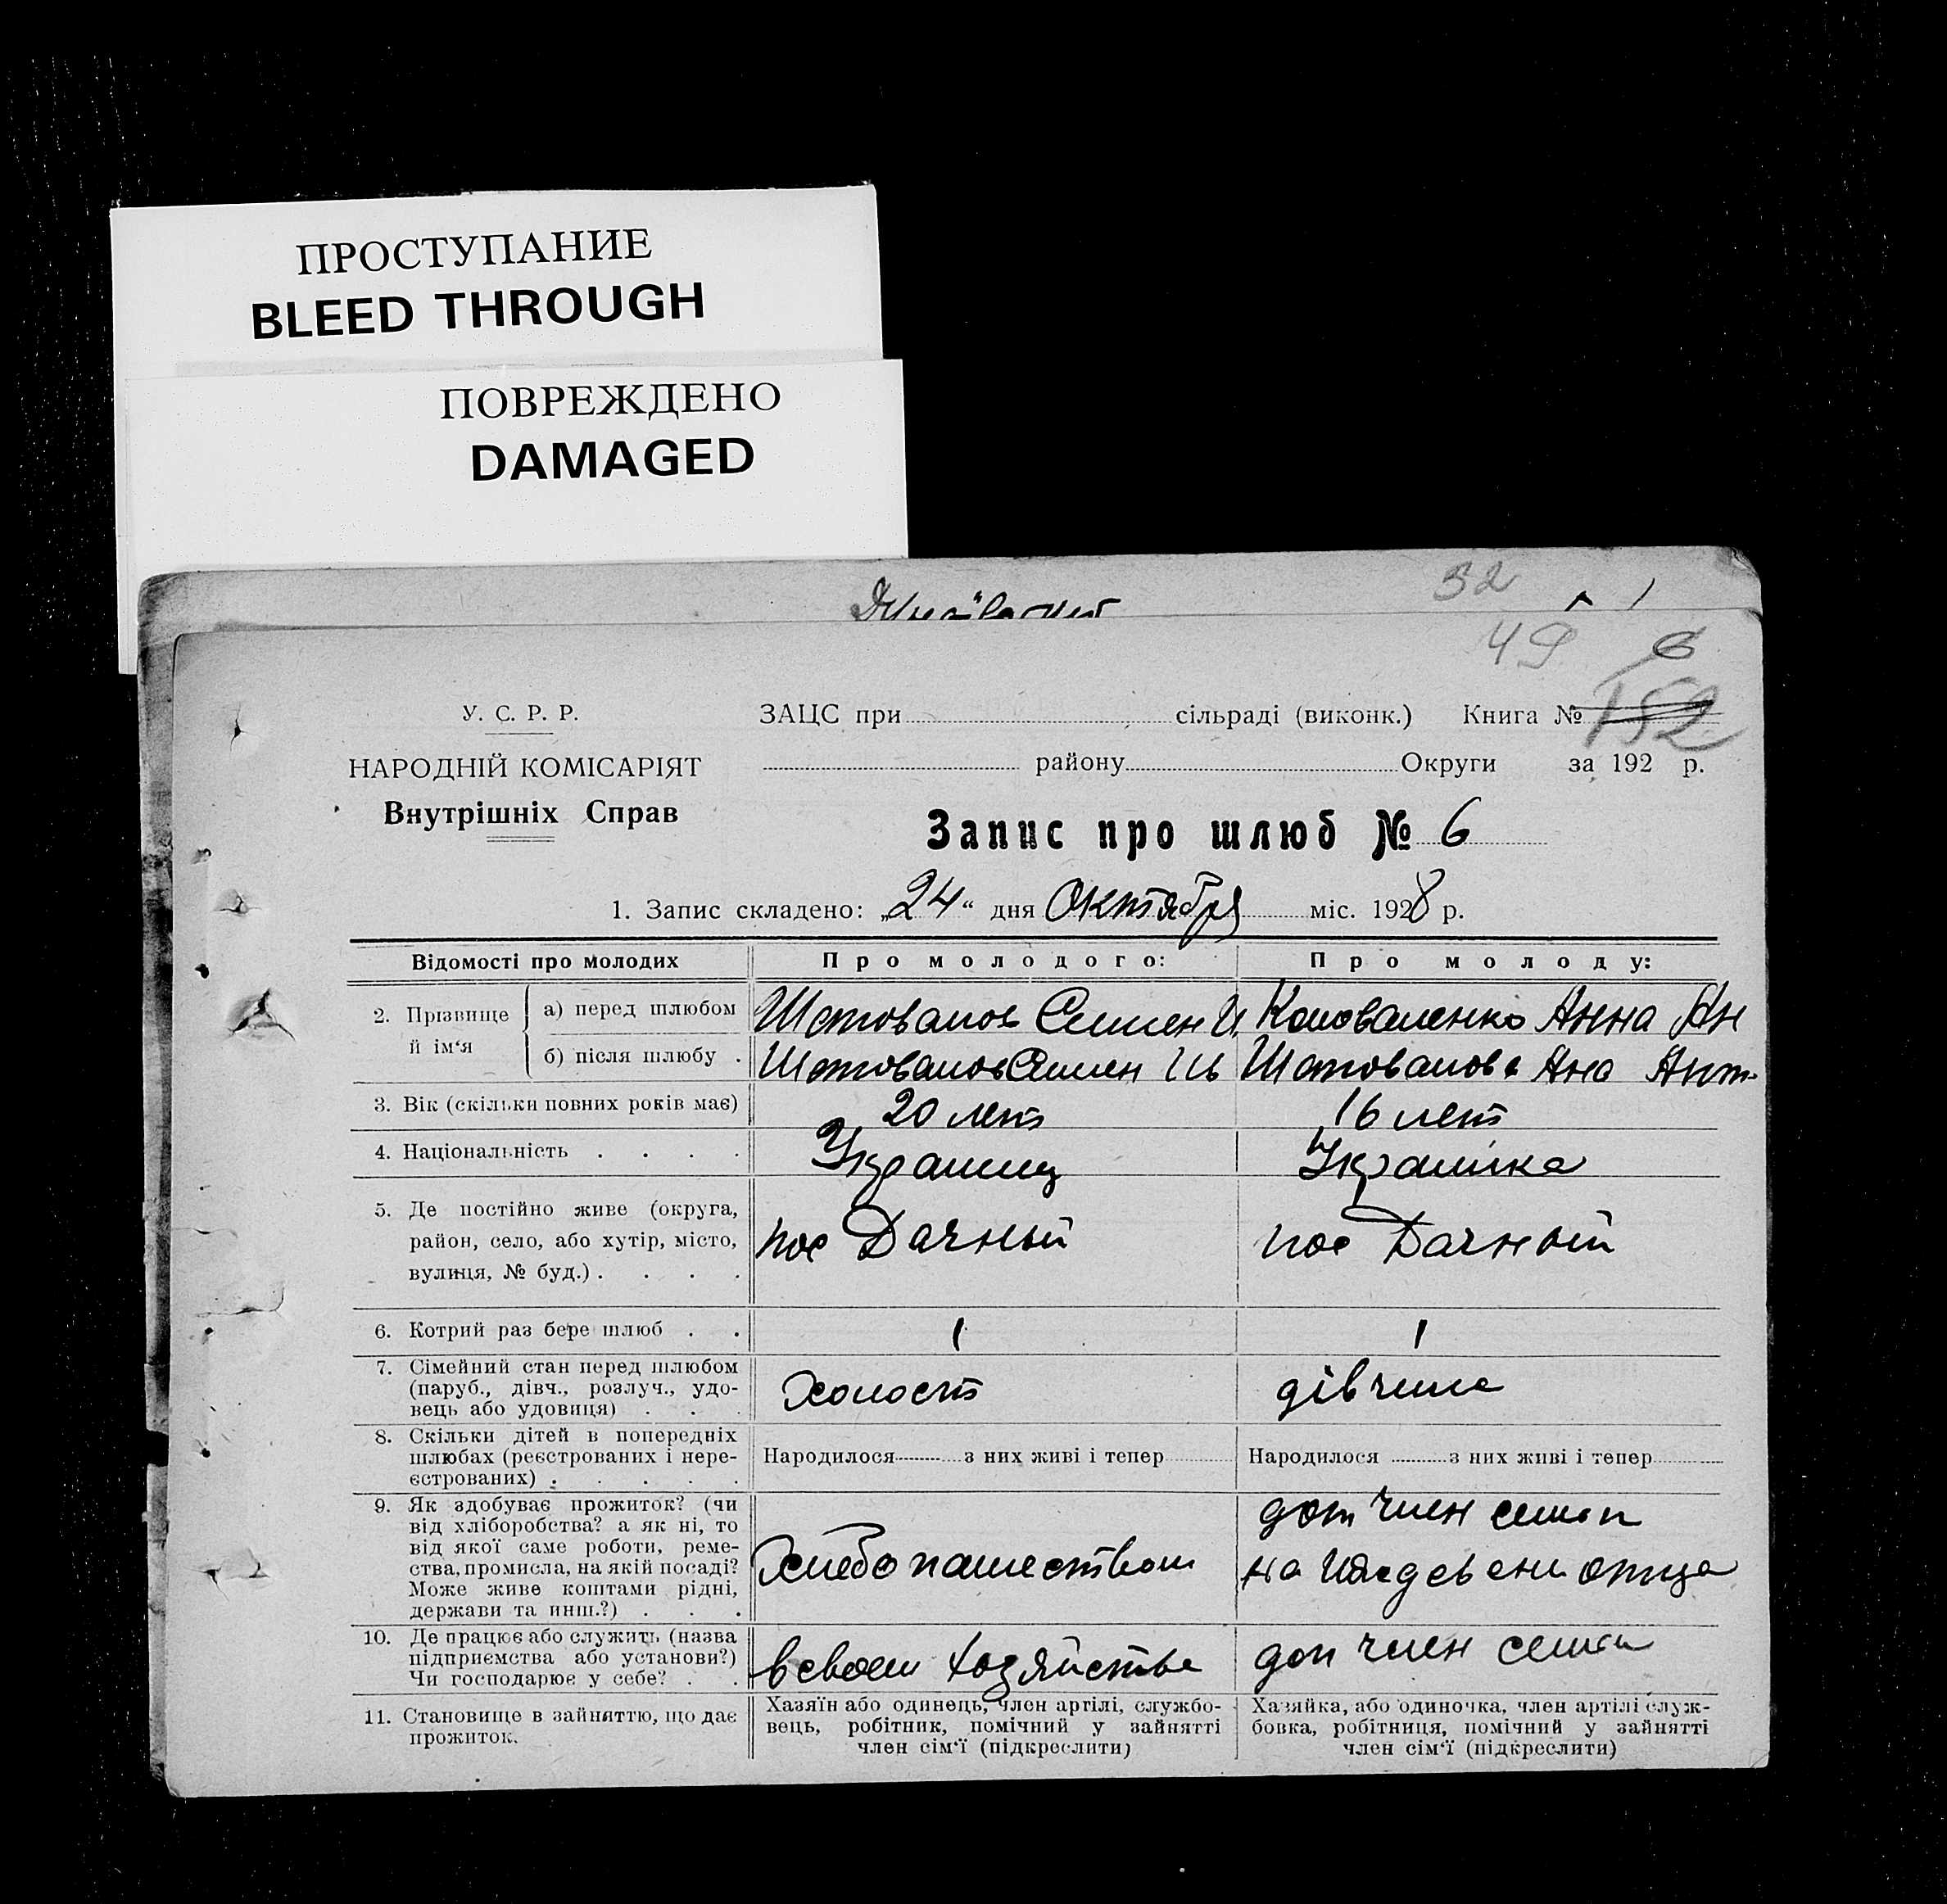 ПРОСТУПАНИЕ
BLEED THROUGH
ПОВРЕЖДЕНО
DAMAGED
52
49 6
У. С. Р. Р.
НАРОДНІЙ КОМІСАРІЯТ
Внутрішніх Справ
ЗАЦС при сільраді (виконк.) Книга № 152
району Округи за 192 р.
Запис про шлюб № 6
1. Запис складено: „24“ дня Октября міс. 1928 р.
Відомості про молодих
Про молодого:
Про молоду:
2. Прізвище й ім‘я
а) перед шлюбом
Шаповалов Семен И
Коноваленко Анна Ан
б) після шлюбу .
Шаповалов Семен Ив
Шаповалова Ана Ант
3. Вік (скільки повних років має)
20 лет
16 лет
4. Національність . . . .
Украинец
Украінка
5. Де постійно живе (округа,
район, село, або хутір, місто,
вулиця, № буд.) . . . .
пос Дачный
пос Дачный
6. Котрий раз бере шлюб . .
1
1
7. Сімейний стан перед шлюбом
(паруб., дівч., розлуч., удо-
вець або удовиця) . . .
Холост
дівчина
8. Скільки дітей в попередніх
шлюбах (реєстрованих і нере-
єстрованих) . . . . .
Народилося з них живі і тепер
Народилося з них живі і тепер
9. Як здобуває прожиток? (чи
від хліборобства? а як ні, то
від якої саме роботи, реме-
ства, промисла, на якій посаді?
Може живе коштами рідні,
держави та инш.?) . . .
Хлебопашеством
доп член семьи
на отца
10. Де працює або служить (назва
підприємства або установи?)
Чи господарює у себе? . .
в своем хозяйстве
доп член семьи
11. Становище в зайняттю, що дає
прожиток.
Хазяїн або одинець, член аргілі, службо-
вець, робітник, помічний у зайнятті
член сім‘ї (підкреслити)
Хазяйка, або одиночка, член артілі служ-
бовка, робітниця, помічний у зайнятті
член сім‘ї (підкреслити)